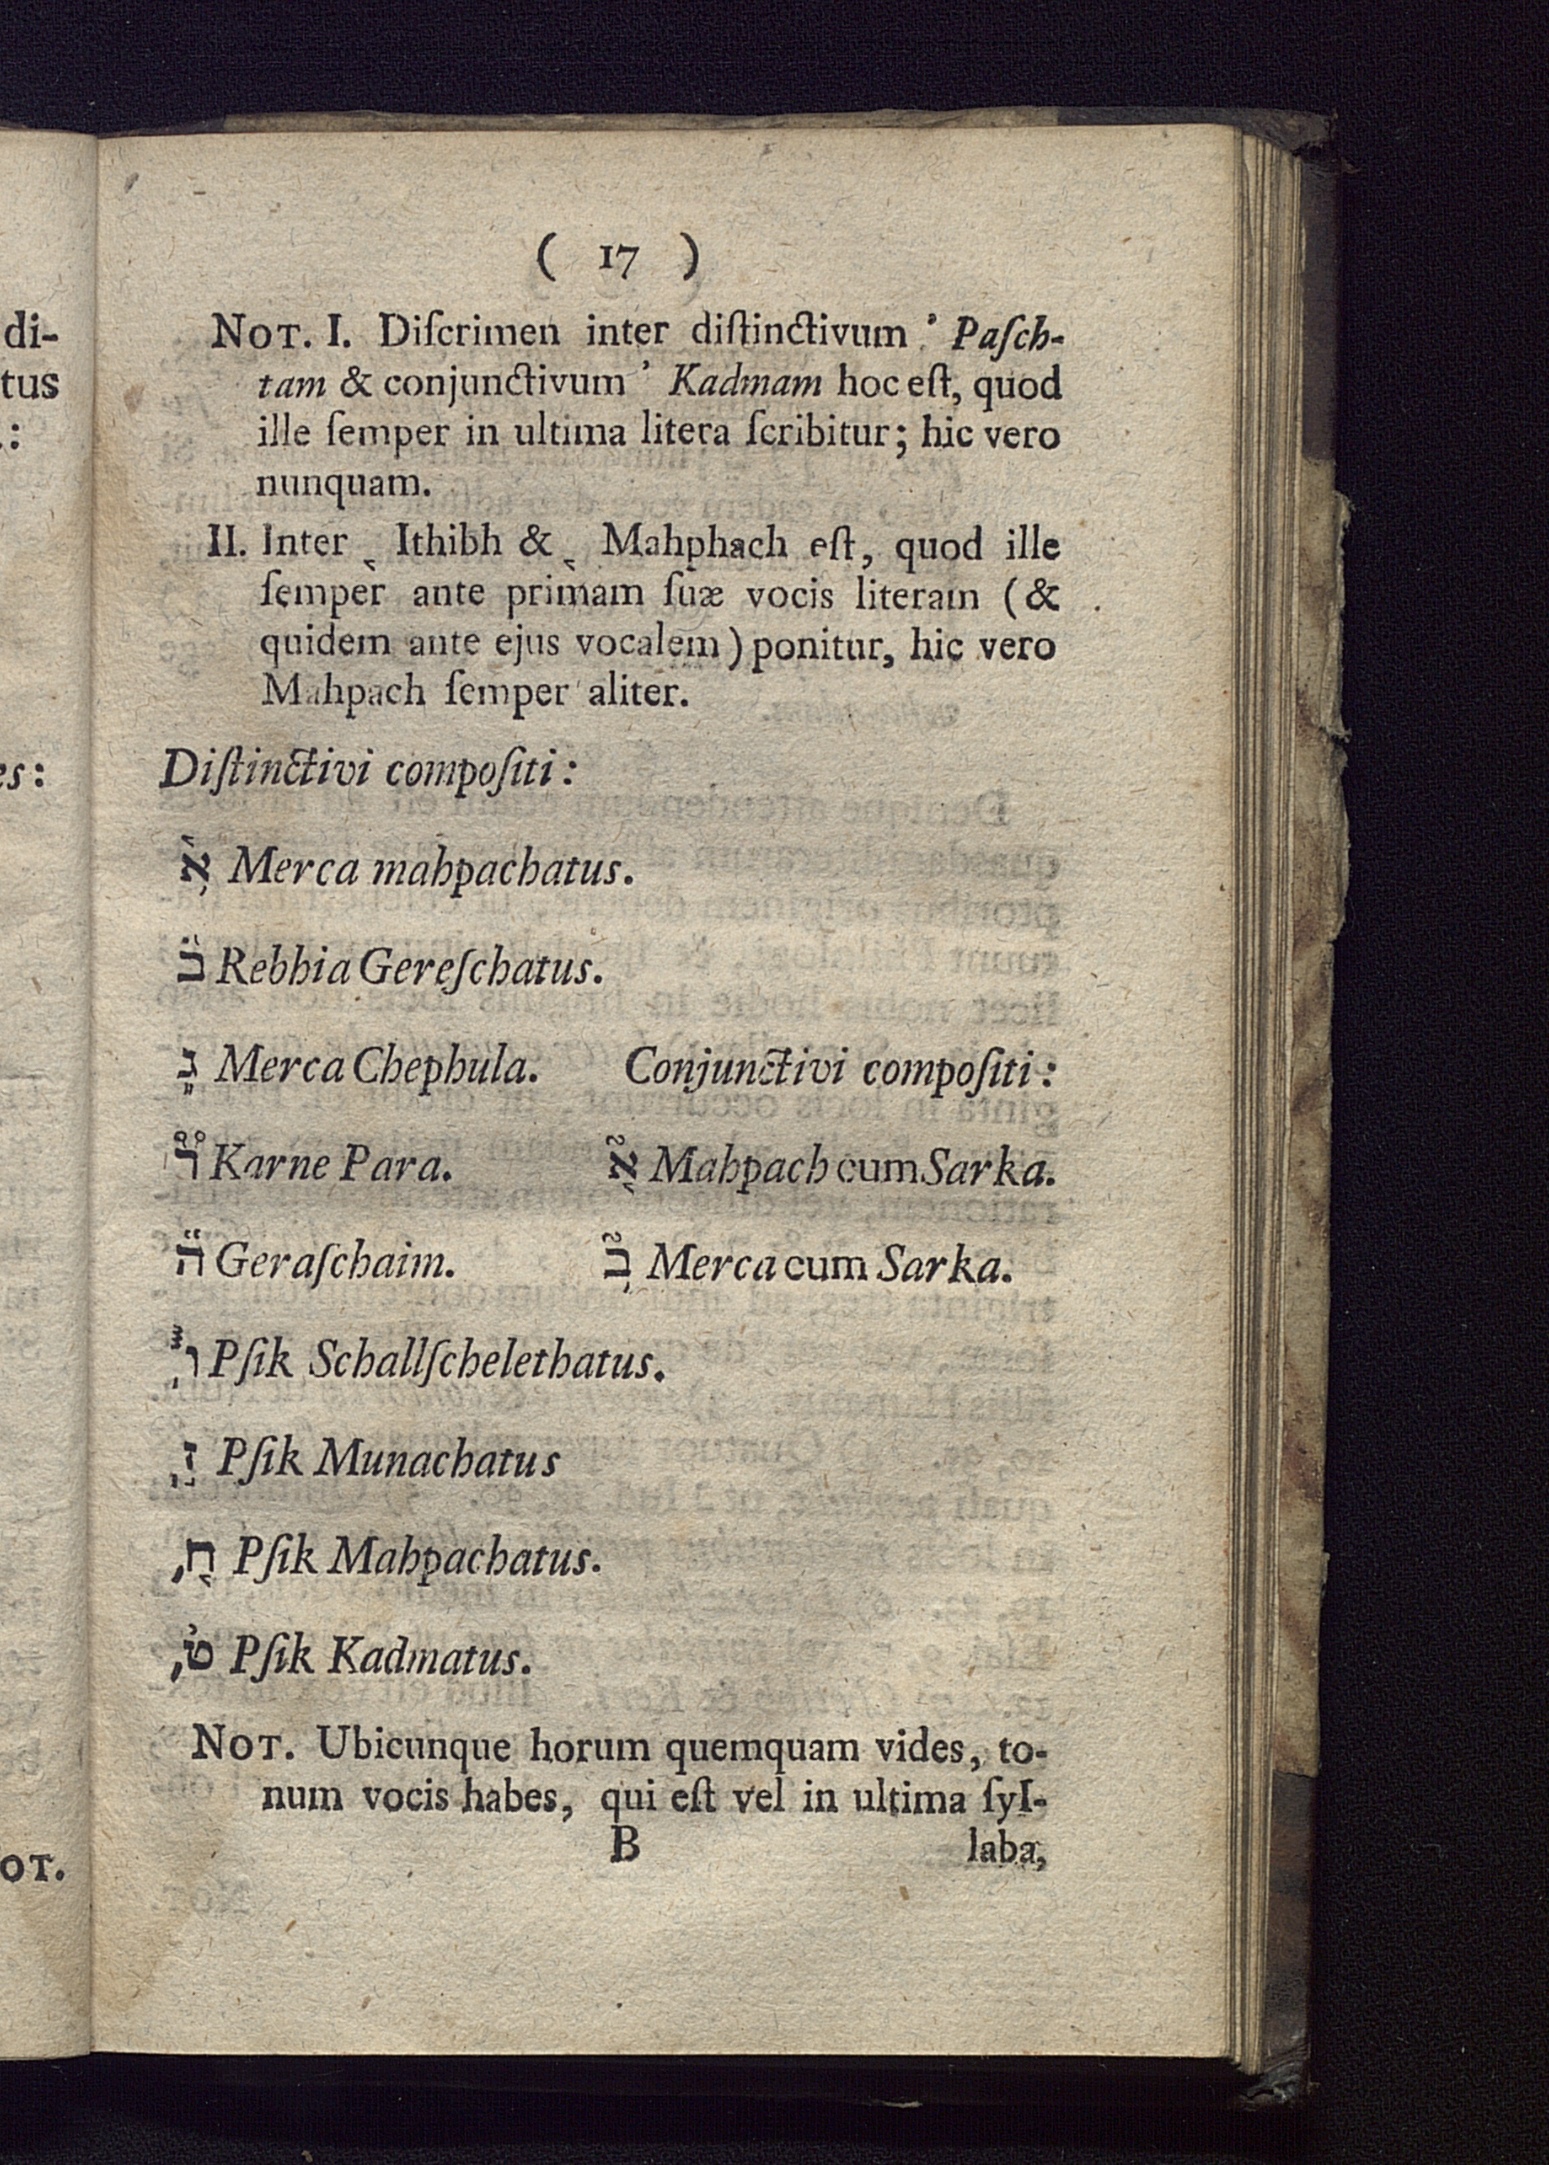 ( 17 )
NOT. I. Diſcrimen inter diſtinctivum ' Paſch-
tam & conjunctivum ' Kadmam hoc eſt, quod
ille ſemper in ultima litera ſcribitur; hic vero
nunquam.
II. Inter ˎ Ithibh & ˎ Mahphach eſt, quod ille
ſemper ante primam ſuæ vocis literam (&
quidem ante ejus vocalem) ponitur, hic vero
Mahpach ſemper aliter.
Diſtinctivi compoſiti:
א֥֫ Merca mahpachatus.
ב֜֗ Rebhia Gereſchatus.
ג֦ Merca Chephula.
ד֟ Karne Para.
ה֞ Geraſchaim.
ו֓ Pſik Schallſchelethatus.
ז֣ Pſik Munachatus
ח֤ Pſik Mahpachatus.
ט֨ Pſik Kadmatus.
Conjunctivi compoſiti:
א֤֘ Mahpach cum Sarka.
ב֥֘ Merca cum Sarka.
NOT. Ubicunque horum quemquam vides, to-
num vocis habes, qui eſt vel in ultima ſyl-
B laba,
di-
tus
.:
es:
OT.